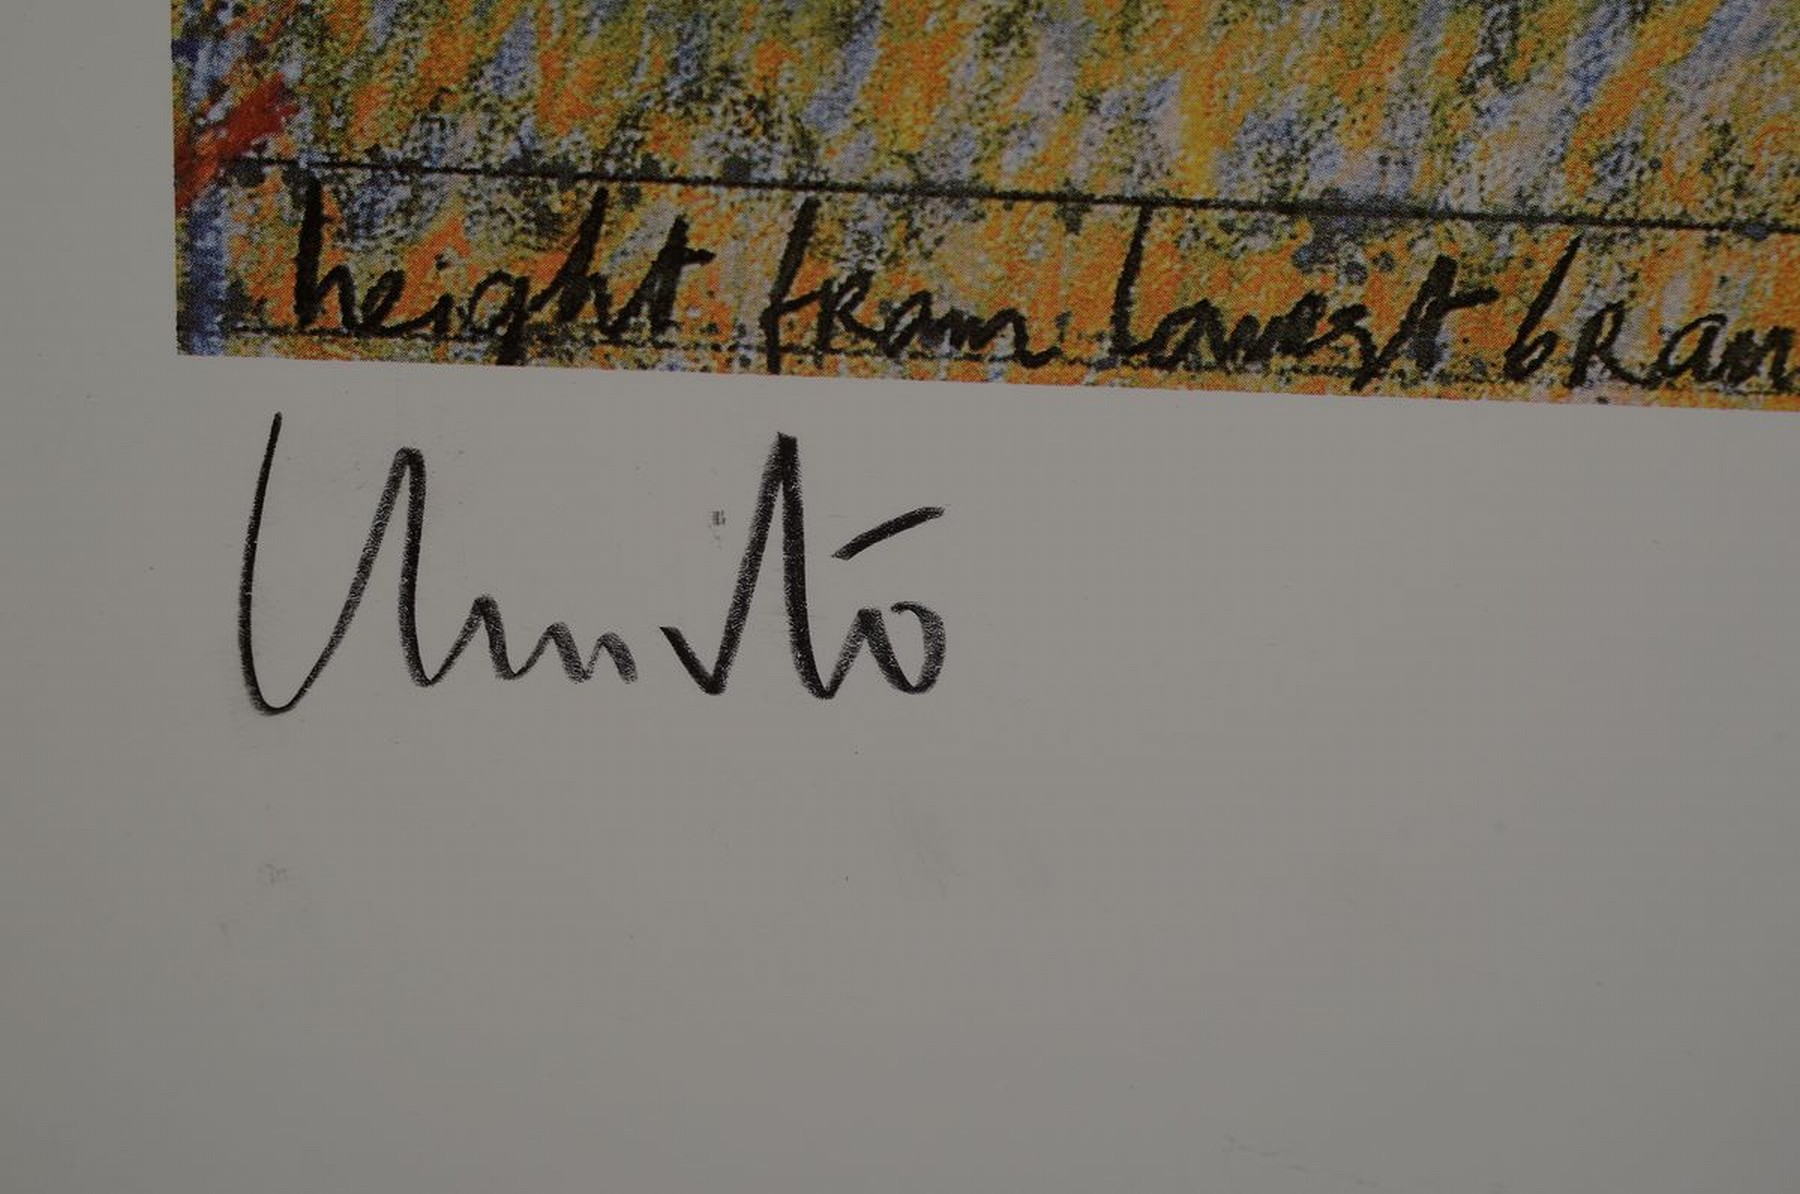 height from lowest bran
Christo